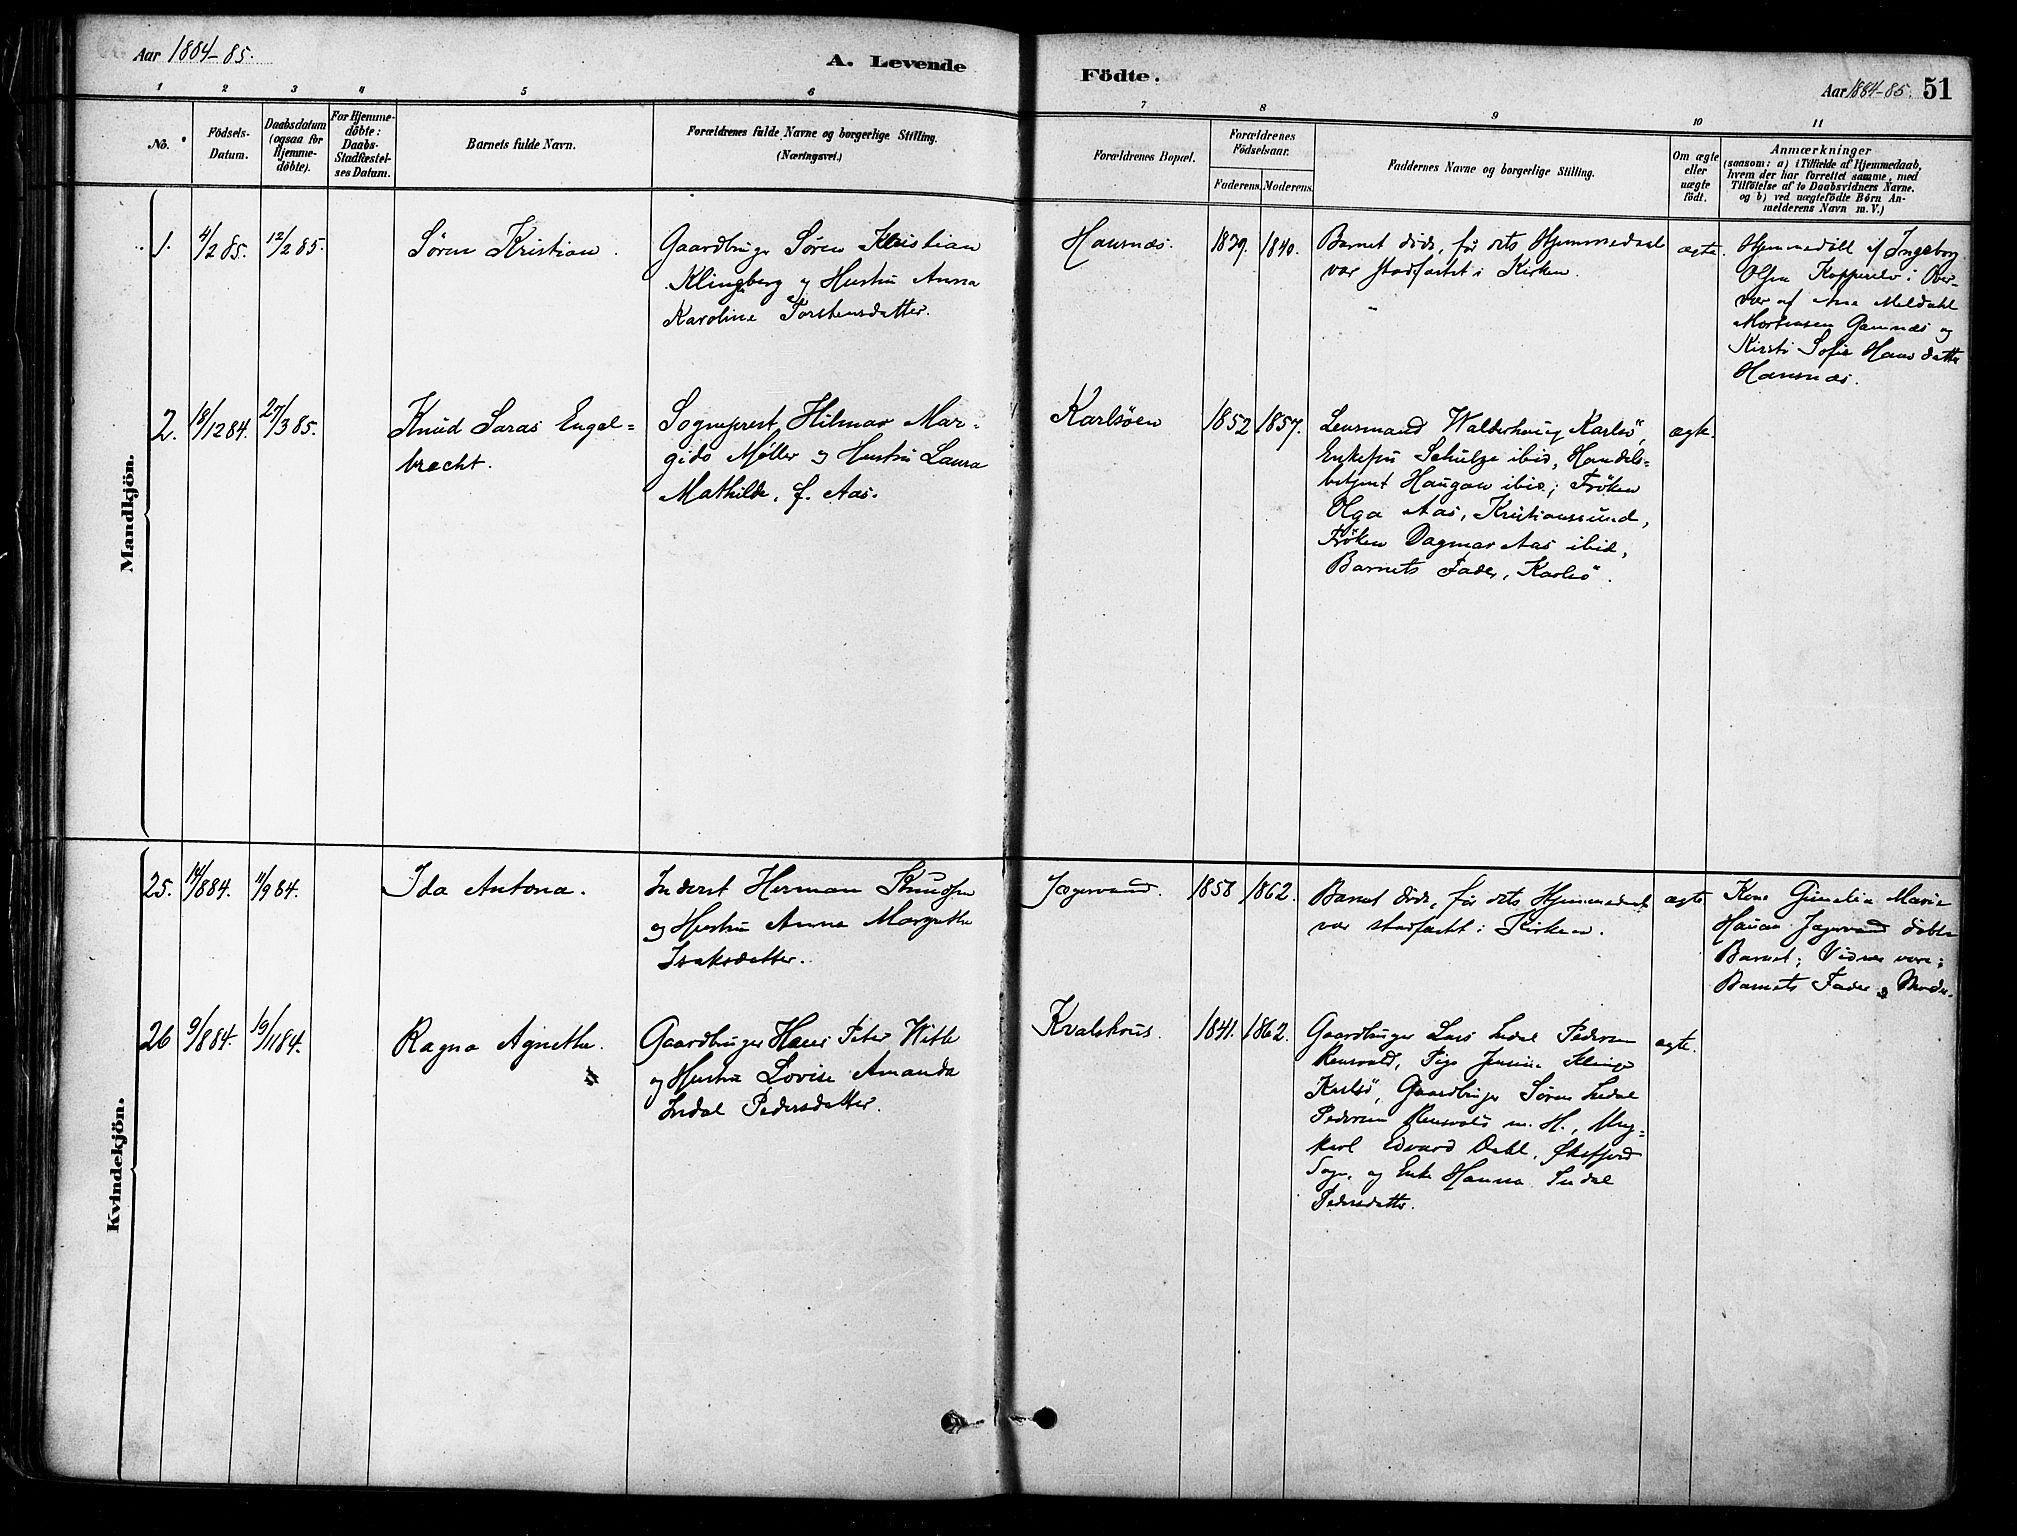 Aar 1884-85.
A. Levende
Födte.
Aar 1884-85. 51
1 2 3 4 5 6 7 8 9 10 11
No.
Födsels-
Datum.
Daabsdatum
(ogsaa for
Hjemme-
döbte).
For Hjemme-
döbte:
Daabs-
Stadfæstel-
ses Datum.
Barnets fulde Navn.
Forældrenes fulde Navne og borgerlige Stilling.
(Næringsvei.)
Forældrenes Bopæl.
Forældrenes
Födselsaar.
Faderens. Moderens.
Faddernes Navne og borgerlige Stilling.
Om ægte
eller
uægte
födt.
Anmærkninger
(saasom: a) i Tilfælde af Hjemmedaab,
hvem der har forrettet samme, med
Tilföielse af to Daabsvidners Navne.
og b) ved uægtefödte Börn An-
melderens Navn m. V.)
Mandkjön.
1.
4/2 85.
12/2 85.
Søren Kristian.
Gaardbruger Søren Kristian
Klingberg og Hustru Anna
Karoline Torstensdatter.
Hansnæs.
1839.
1840.
Barnet døde, før dets Hjemmedaab
var stadfæstet i Kirken.
ægte.
Hjemmedøbt af Ingeborg
Olsen Kopperelv i Over-
vær af Ane Meldahl
Mortensen Gamnæs og
Kirsti Sofie Hansdatter
Hansnæs.
2.
18/12 84.
27/3 85.
Knud Saras Engel=
brecht.
Sogneprest Hilmar Mar-
gido Møller og Hustru Laura
Mathilde, f. Aas.
Karlsøen
1852
1857.
Lensmand Walderhaug Karlsø,
Enkefru Schulze ibid, Handels-
betjent Haugan ibid; Frøken
Olga Aas, Kristianssund,
Frøken Dagmar Aas ibid,
Barnets Fader, Karlsø.
ægte.
Kvindekjön.
25.
14/8 84.
11/9 84.
Ida Antona.
Inderst Herman Knudsen
og Hustru Anna Margrethe
Isaksdatter.
Jægervand.
1858
1862.
Barnet døde, før dets Hjemmedaab
var stadfæstet i Kirken.
ægte
Kone Marie
Hansen Jægervand døbte
Barnet; Vidner vare:
Barnets Fader og Moder.
26
9/8 84.
19/11 84.
Ragna Agnethe.
Gaardbruger Hans Peter Witte
og Hustru Lovise Amanda
Indal Pedersdatter.
Kvalshaus.
1841.
1862.
Gaardbruger Lars Indal Pedersen
Rensvold, Pige Jensine Klinge
Karlsø, Gaardbruger Søren Indal
Pedersen Rensvold m. H., Ung-
karl Edvard Dahl, Øksfjord
Sogn, og Enke Hanna Indal
Pedersdatter.
ægte.